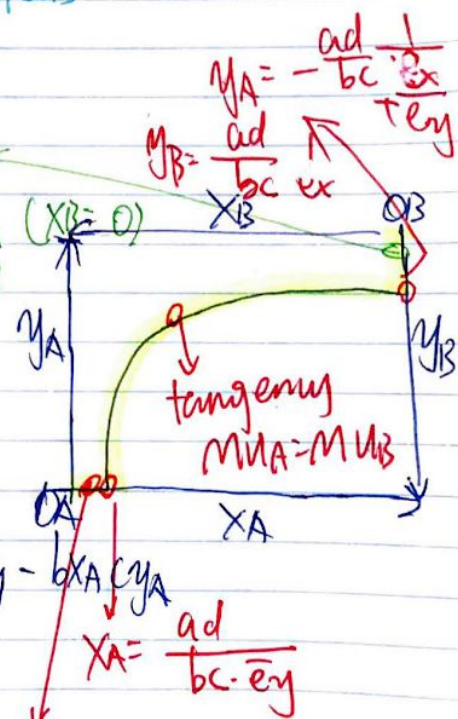 yA = - ad/bc · 1/ex + ey
yB = ad/bc ex
(XB = 0)
XB
OB
yA
yB
tangency
MUA = MUB
OA
XA
- bXA CyA
XA = ad/bc · ey